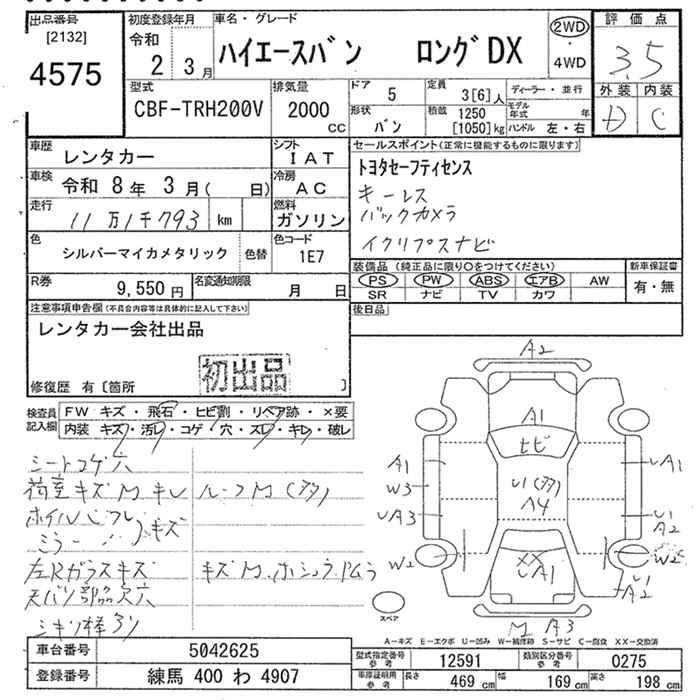 出品番号
[2132]
4575
初度登録年月
令和
2 3月
車名・グレード
ハイエースバン ロングDX
2WD
・
4WD
評価点
3.5
外装 内装
D C
型式
CBF-TRH200V
排気量
2000
CC
ドア
5
定員
3[6]人
ディーラー・並行
形状
バン
積載
1250
[1050]kg
モデル
年式 年
ハンドル 左・右
車歴
レンタカー
シフト
IAT
車検
令和 8年 3月( 日)
冷房
AC
走行
11万1千793 km
燃料
ガソリン
色
シルバーマイカメタリック
色替
色コード
1E7
R券
9,550円
名変通知期限
月 日
セールスポイント(正常に機能するものに限ります)
トヨタセーフティセンス
キーレス
バックカメラ
イクリプスナビ
装備品 (純正品に限り○をつけてください)
PS PW ABS エアB AW
SR ナビ TV カワ
新車保証書
有・無
後日品
注意事項申告欄(不具合内容等は具体的に記入して下さい)
レンタカー会社出品
初出品
修復歴 有〔箇所 〕
検査員
記入欄
FW キズ・飛石・ヒビ割・リペア跡・×要
内装 キズ・汚レ・コゲ・穴・スレ・キレ・破レ
シートコゲ穴
荷室キズM キレ ルーフM(多)
ホイルLフレ
ミラー 〃 キズ
左Rガラスキズ
天バリ
A2
A1
ヒビ
U1(多)
A4
××
UA1
A1
W3
UA3
W2
UA1
U1
A2
W2
U1
A2
M A3
スペア
A-キズ E-エクボ U-凹み W-補修跡 S-サビ C-腐食 XX-交換済
車台番号
5042625
登録番号
練馬 400 わ 4907
型式指定番号
参考
12591
類別区分番号
参考
0275
車庫証明用
参考
長さ 469cm 幅 169cm 高さ 198cm